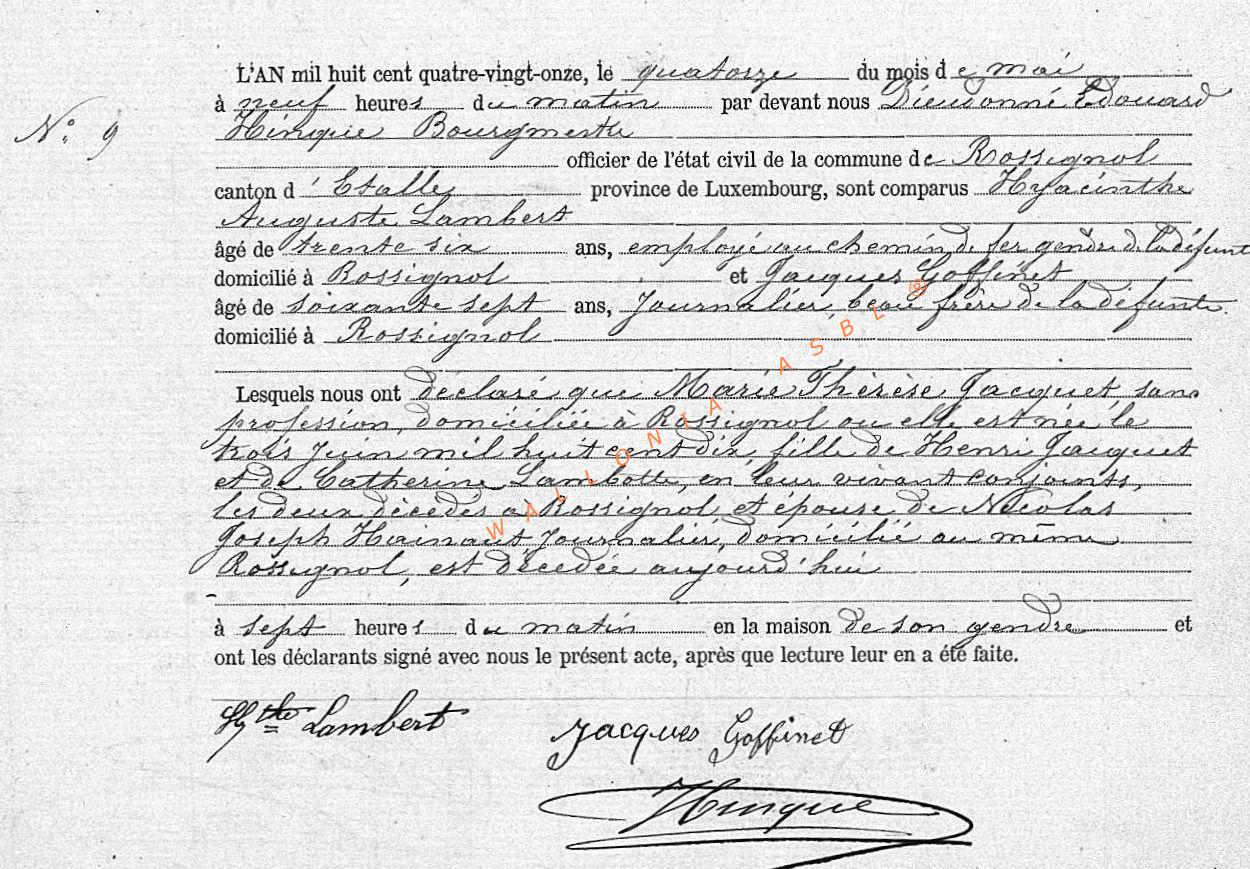 L'AN mil huit cent quatre-vingt-onze, le quatorze du mois de mai
à neuf heures du matin par devant nous Dieudonné Edouard
N° 9
Hinque Bourgmestre
officier de l'état civil de la commune de Rossignol
canton d'Etalle province de Luxembourg, sont comparus Hyacinthe
Auguste Lambert
âgé de trente six ans, employé au chemin de fer gendre de la défunte
domicilié à Rossignol et Jacques Goffinet
âgé de soixante sept ans, Journalier, beau frère de la défunte
domicilié à Rossignol
Lesquels nous ont déclaré que Marie Thérèse Jacquet sans
profession, domiciliée à Rossignol ou elle est née le
trois Juin mil huit cent dix, fille de Henri Jacquet
et de Catherine Lambotte, en leur vivant conjoints,
les deux décédés à Rossignol, et épouse de Nicolas
Joseph Hainaut Journalier, domicilié au même
Rossignol, est décédée aujourd'hui
à sept heures du matin en la maison de son gendre et
ont les déclarants signé avec nous le présent acte, après que lecture leur en a été faite.
Hythe Lambert
Jacques Goffinet
Hinque
WALLONIA ASBL ®